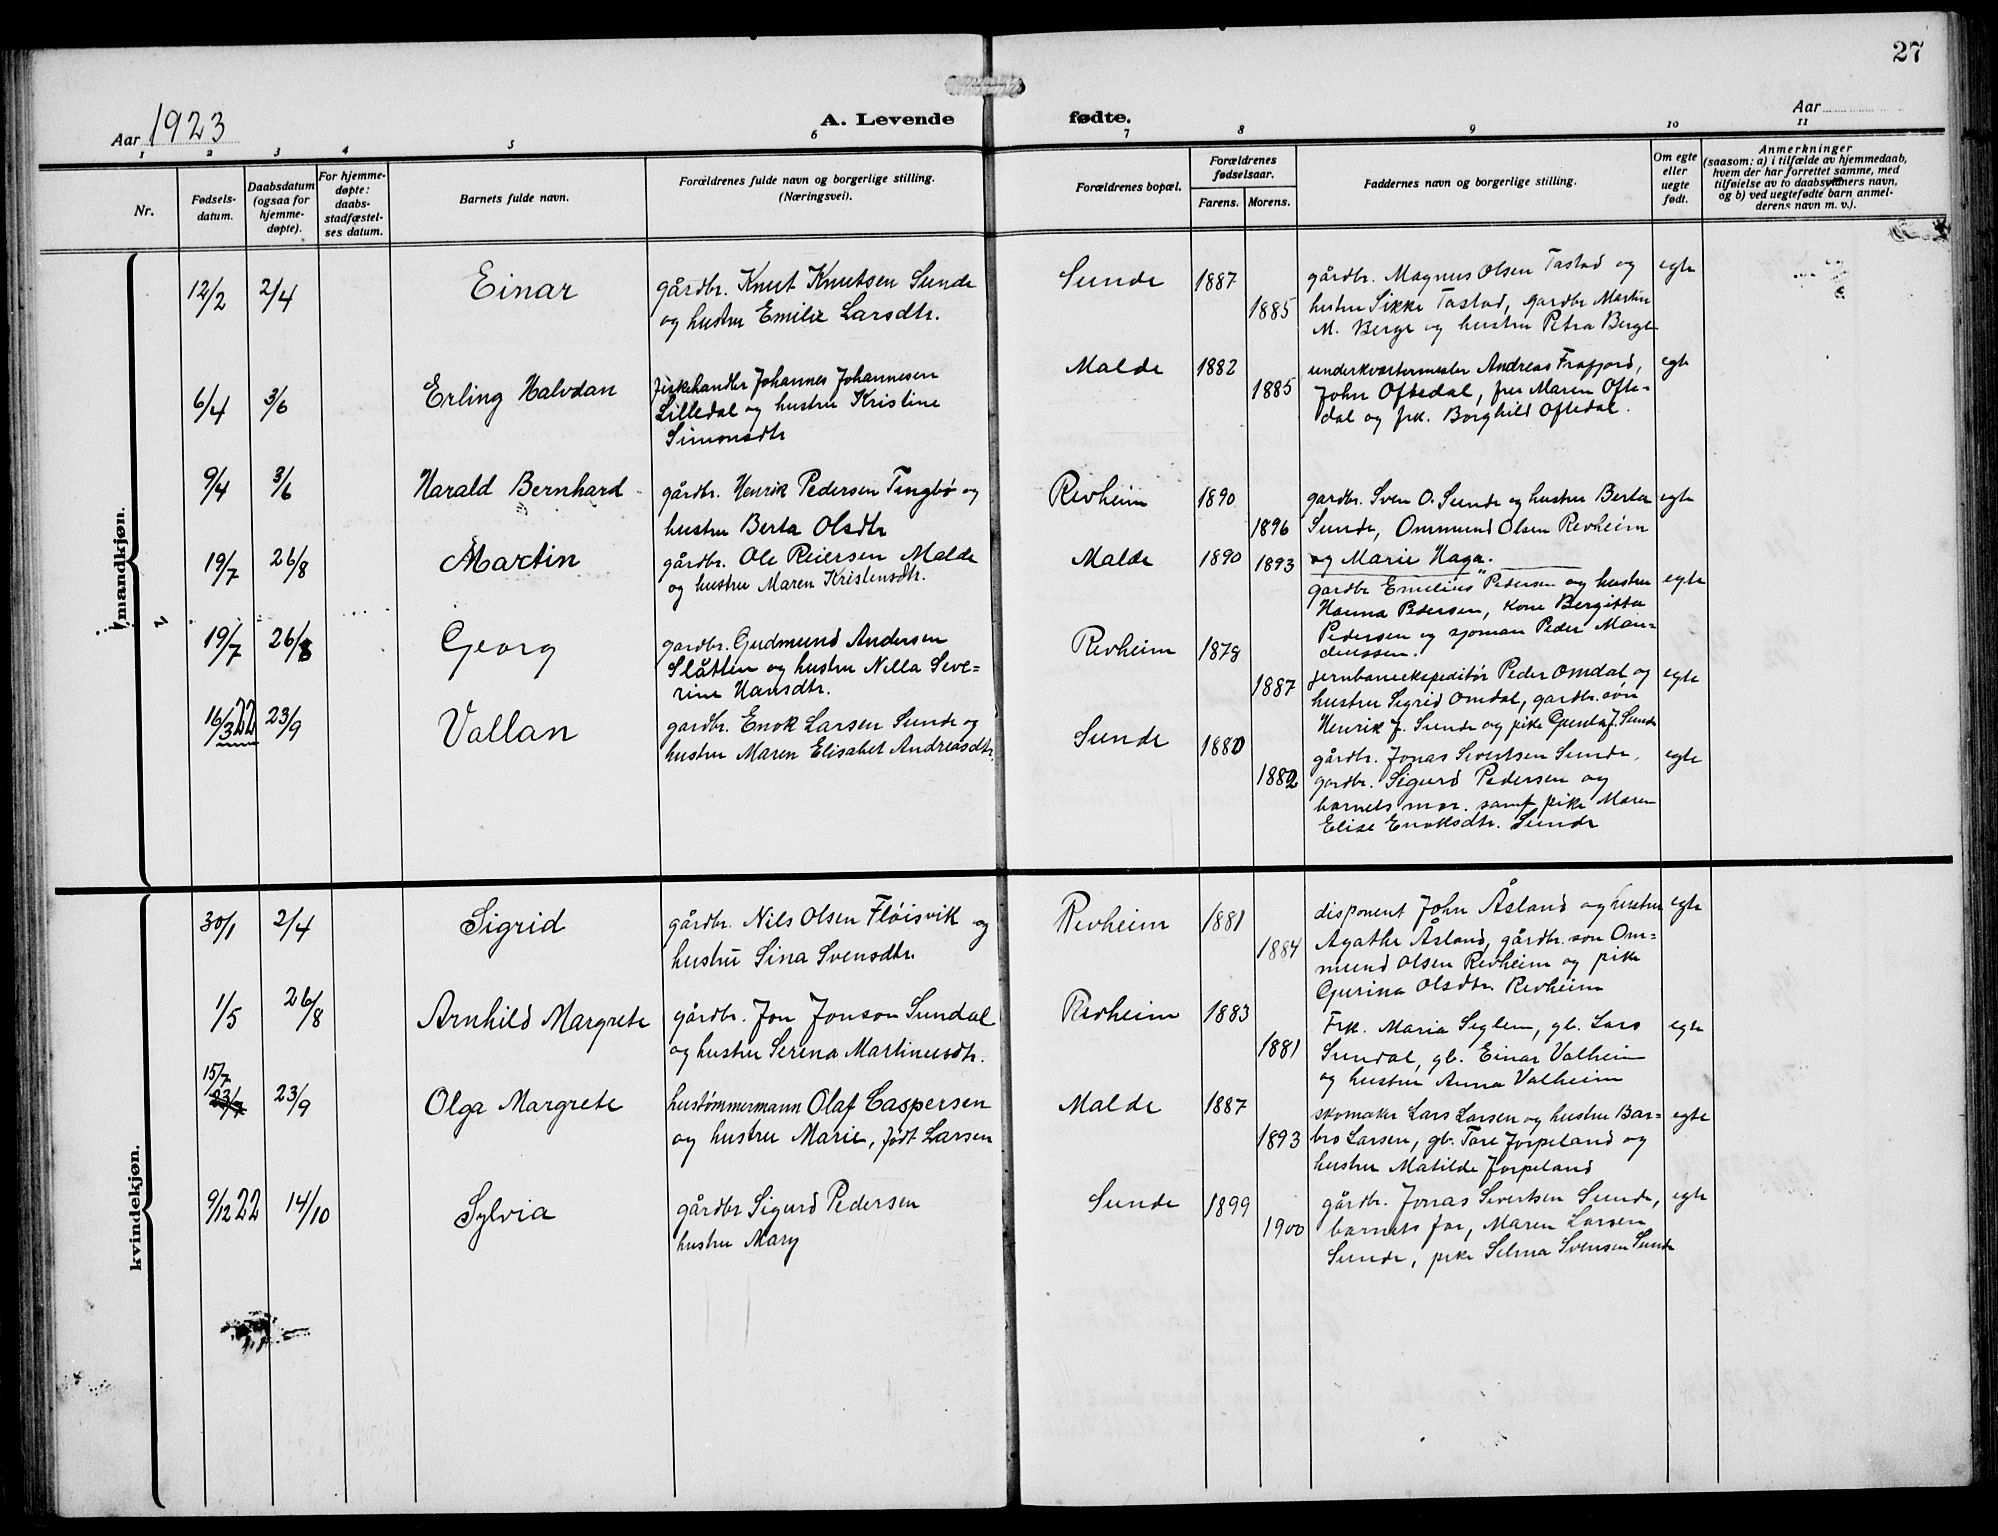 27
Aar 1923
A. Levende fødte.
Aar
1 2 3 4 5 6 7 8 9 10 11
Nr.
Fødsels-
datum.
Daabsdatum
(ogsaa for
hjemme-
døpte).
For hjemme-
døpte:
daabs-
stadfæstel-
ses datum.
Barnets fulde navn.
Forældrenes fulde navn og borgerlige stilling.
(Næringsvei).
Forældrenes bopæl.
Forældrenes
fødselsaar.
Farens. Morens.
Faddernes navn og borgerlige stilling.
Om egte
eller
uegte
født.
Anmerkninger
(saasom: a) i tilfælde av hjemmedaab,
hvem der har forrettet samme, med
tilføielse av to daabsvidners navn,
og b) ved uegtefødte barn anmel-
derens navn m. v.).
mandkjøn.
12/2 2/4 Einar
gårdbr. Knut Knutsen Sunde
og hustru Emilie Larsdtr.
Sunde 1887 1885
gårdbr. Magnus Olsen Tastad og
hustru Sikke Tastad, gardbr Martin
M. Berge og hustru Petra Berge
egte
6/4 3/6 Erling Halvdan
firkehandler Johannes Johannesen
Lilledal og hustru Kristine
Simonsdtr
Malde 1882 1885
underkvartermester Andreas Frafjord,
John Oftedal, fru Maren Ofte-
dal og frk. Borghild Oftedal.
egte
9/4 3/6 Harald Bernhard
gårdbr. Henrik Pedersen Tingbø og
hustru Berta Olsdtr
Revheim 1890 1896
gardbr. Sven O. Sunde og hustru Berta
Sunde, Ommund Olsen Revheim
og Marie Haga.
egte
19/7 26/8 Martin
gårdbr. Ole Reiersen Malde
og hustru Maren Kristensdtr.
Malde 1890 1893
gardbr Emelius Pedersen og hustru
Hanna Pedersen, kone Bergitta
Pedersen og sjoman Peder Man-
diussen.
egte
19/7 26/8 Georg
gardbr. Gudmund Andersen
Slåtten og hustru Nilla Seve-
rine Hansdtr.
Revheim 1878 1887
jernbaneekspeditør Peder Omdal og
hustru Sigrid Omdal, gardbr. søn
Henrik J. Sunde og pike Gunda J. Sunde
egte
16/3 22 23/9 Vallan
gardbr. Enok Larsen Sunde og
hustru Maren Elisabet Andreasdtr.
Sunde 1880 1882
gårdbr. Jonas Sivertsen Sunde,
gardbr. Sigurd Pedersen og
barnets mor. samt pike Maren
Elise Enoksdtr. Sunde
egte
kvindekjøn.
30/1 2/4 Sigrid
gårdbr. Nils Olsen Fløisvik og
hustru Sina Svensdtr.
Revheim 1881 1884
disponent John Åsland og hustru
Agathe Åsland, gårdbr. søn Om-
mund Olsen Revheim og pike
Gurina Olsdtr. Revheim
egte
1/5 26/8 Arnhild Margrete
gårdbr. Jon Jonson Sundal
og hustru Serena Martinusdtr.
Revheim 1883 1881
Frk. Maria Seglem, gb. Lars
Sundal, gb. Einar Valheim
og hustru Anna Valheim
egte
15/7
23/7 23/9 Olga Margrete
hustømmermann Olaf Caspersen
og hustru Marie, født Larsen
Malde 1887 1893
skomaker Lars Larsen og hustru Bar-
bro Larsen, gb. Tore Jørpeland og
hustru Matilde Jørpeland
egte
9/12 22 14/10 Sylvia
gårdbr Sigurd Pedersen
hustru Mary
Sunde 1899 1900
gårdbr. Jonas Sivertsen Sunde,
barnets far, Maren Larsen
Sunde, pike Selma Svensen Sunde
egte